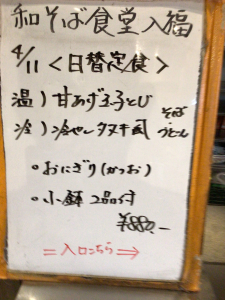 和そば食堂入福
4/11 <日替定食>
温) 甘あげ玉子とじ
冷) 冷やしタヌキ風 そば うどん
• おにぎり(かつお)
• 小鉢 2品付
¥880-
= 入口こちら ⇒